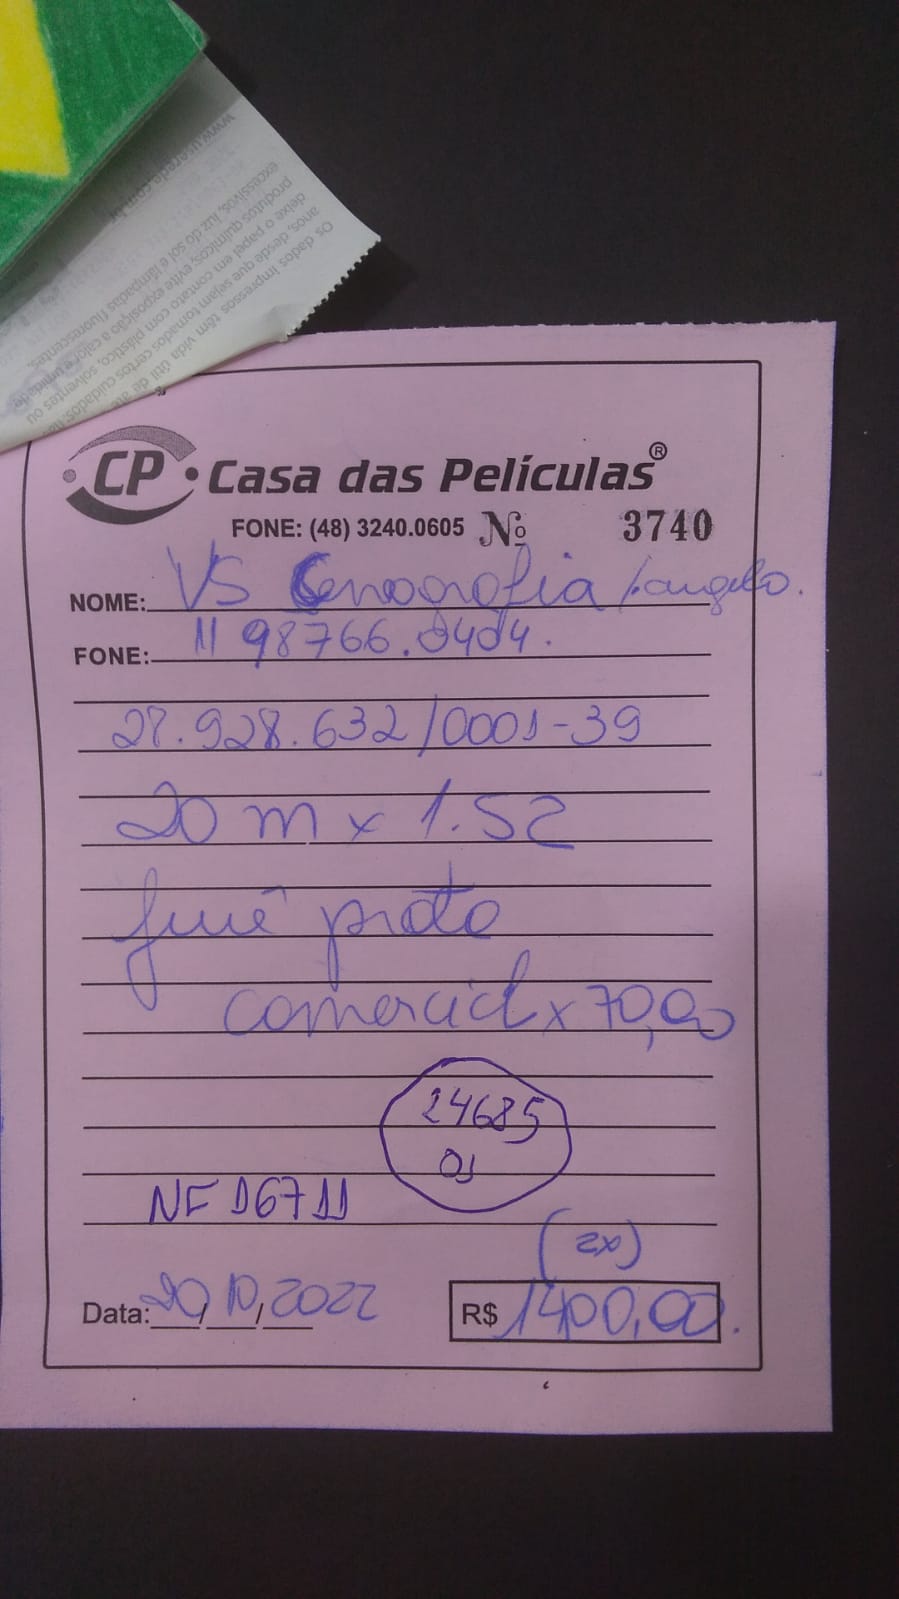 www.
Os dados impressos têm vida útil de
anos, desde que sejam tomados certos cuidados:
deixe o papel em contato com plástico, solventes ou
produtos químicos, evite exposição a calor e umidade
excessivos, luz do sol e lâmpadas fluorescentes.
CP Casa das Películas®
FONE: (48) 3240.0605 Nº 3740
NOME: VS Cenografia / angelo.
FONE: 11 98766.0404.
27.928.632/0001-39
20 m x 1.52
fumê preto
comercial x 70,00
24685
OS
NF 16711
(2x)
Data: 20/10/2022 R$ 1400,00.